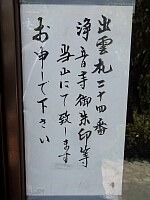 出雲札二十四番
浄音寺御朱印等
当山にて致します
お申し下さい